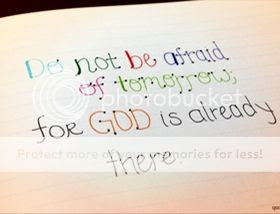 Do not be afraid
of tomorrow;
for GOD is already
there.
photobucket
Protect more of your memories for less!